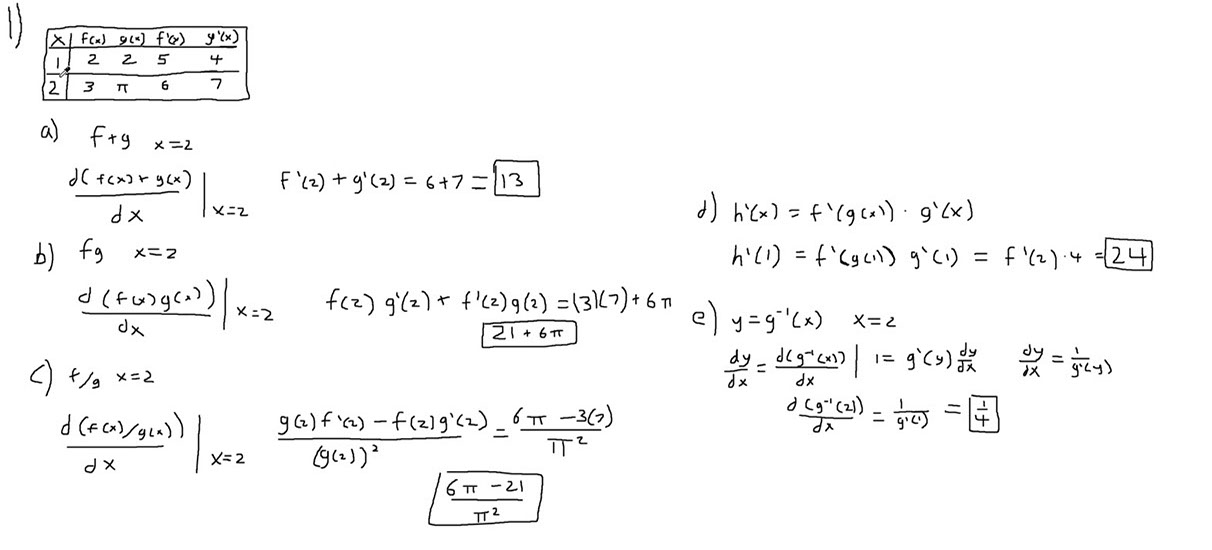 1)
x f(x) g(x) f'(x) g'(x)
1 2 2 5 4
2 3 π 6 7
a) f+g x=2
d(f(x)+g(x))/dx | x=2 f'(2)+g'(2) = 6+7 = 13
b) fg x=2
d(f(x)g(x))/dx | x=2 f(2)g'(2)+f'(2)g(2) = (3)(7)+6π
21+6π
c) f/g x=2
d(f(x)/g(x))/dx | x=2 g(2)f'(2)-f(2)g'(2)/(g(2))² = 6π-3(7)/π²
6π-21/π²
d) h'(x) = f'(g(x))·g'(x)
h'(1) = f'(g(1)) g'(1) = f'(2)·4 = 24
e) y=g⁻¹(x) x=2
dy/dx = d(g⁻¹(x))/dx | 1 = g'(y) dy/dx dy/dx = 1/g'(y)
d(g⁻¹(2))/dx = 1/g'(1) = 1/4